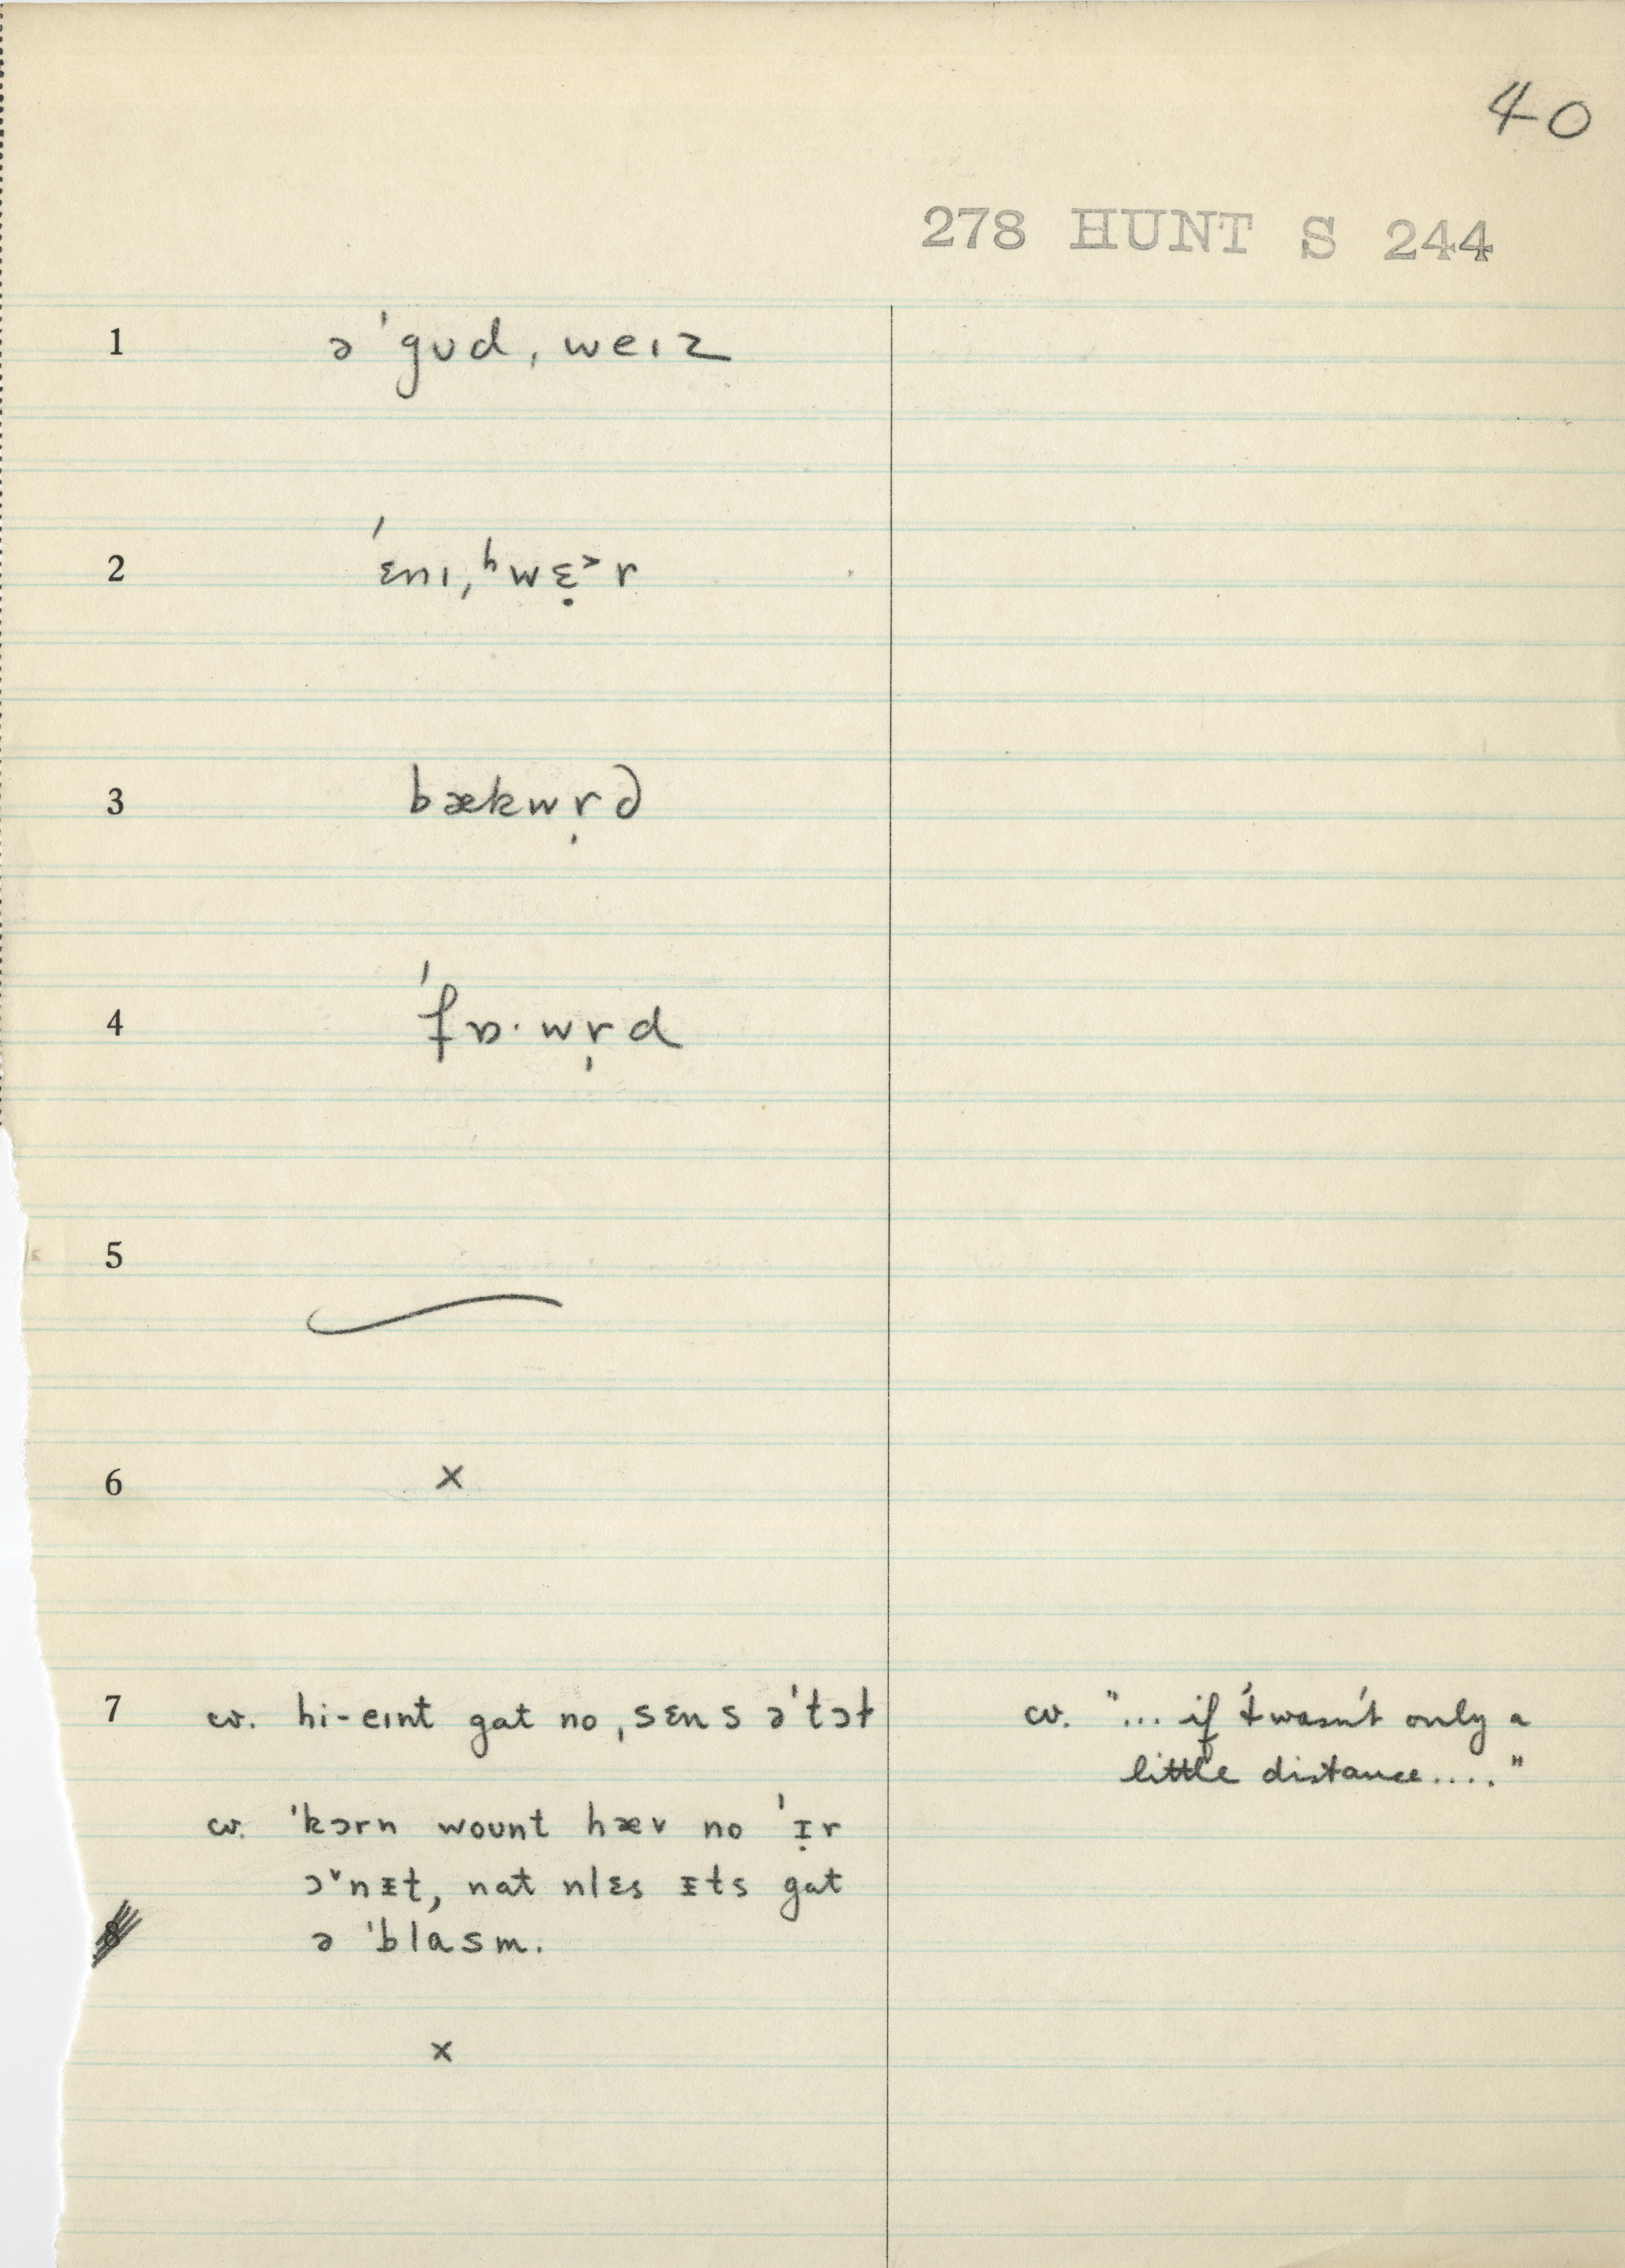 40
278 HUNT S 244
1 ə ˈgʊd ˌweɪz
2 ˈɛnɪ ˌʰwɛ̣˃r
3 bækwr̩d
4 ˈfɒ·wr̩d
5
6 ×
7 cv. hi-eɪnt gat no ˌsɛns əˈtɔt
cv. "... if 't wasn't only a
little distance...."
cv. ˈkɔrn woʊnt hæv no ˈɪ̣r
ɔ˅nɪt, nat nlɛs ɪts gat
ə ˈblasm.
8
×